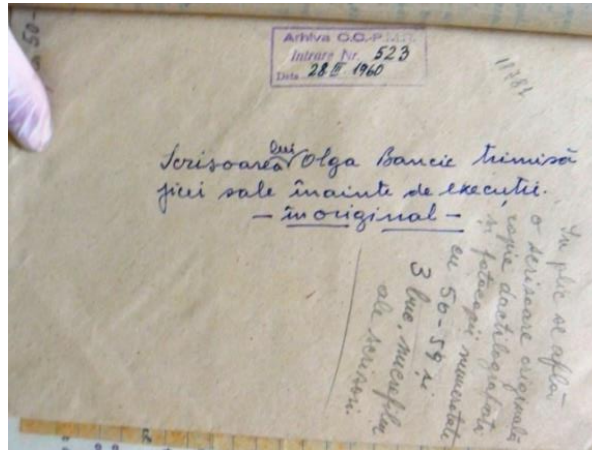 Arhiva C.C.-P.M.R.
Intrare Nr. 523
Data 28 III 1960
Scrisoarea lui Olga Bancic trimisă
ficei sale înainte de execuție.
— în original —
In plic se află
o scrisoare originală
copie dactilografiată
și fotocopii numerotate
cu 50-59 și
3 buc. microfilm
ale scrisorii